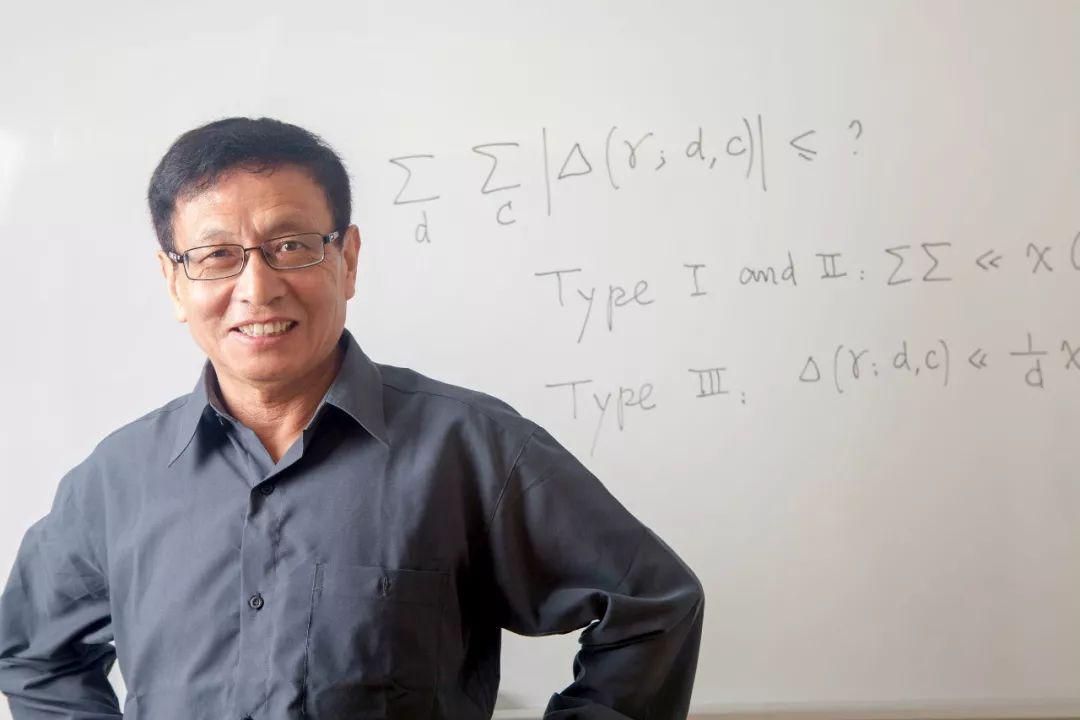 ∑_d ∑_c |Δ(γ; d, c)| ≤ ?
Type I and II: ∑∑ ≪ x (
Type III: Δ(γ; d, c) ≪ 1/d x